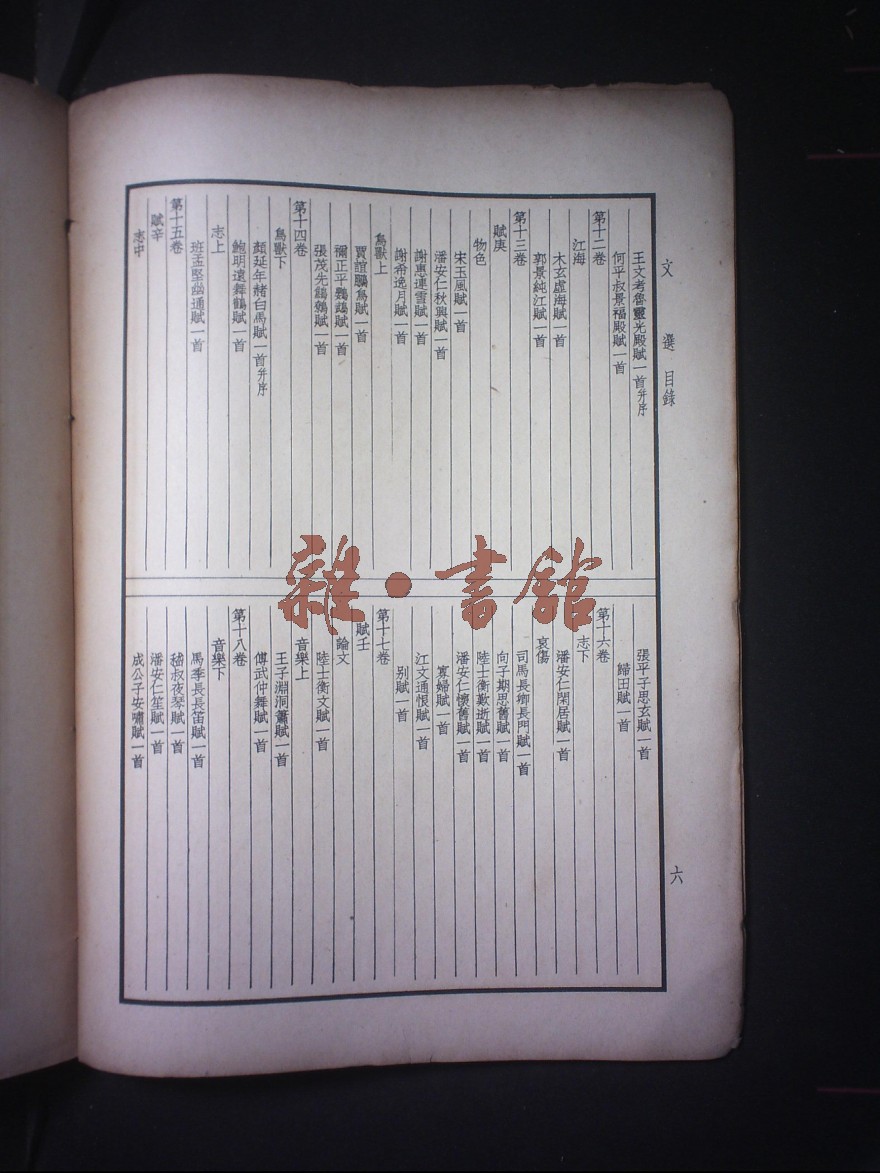 文選 目錄
王文考魯靈光殿賦一首并序
何平叔景福殿賦一首
第十二卷
江海
木玄虛海賦一首
郭景純江賦一首
第十三卷
賦庚
物色
宋玉風賦一首
潘安仁秋興賦一首
謝惠連雪賦一首
謝希逸月賦一首
鳥獸上
賈誼鵩鳥賦一首
禰正平鸚鵡賦一首
張茂先鷦鷯賦一首
第十四卷
鳥獸下
顏延年赭白馬賦一首并序
鮑明遠舞鶴賦一首
志上
班孟堅幽通賦一首
第十五卷
賦辛
志中
張平子思玄賦一首
歸田賦一首
第十六卷
志下
潘安仁閑居賦一首
哀傷
司馬長卿長門賦一首
向子期思舊賦一首
陸士衡歎逝賦一首
潘安仁懷舊賦一首
寡婦賦一首
江文通恨賦一首
別賦一首
第十七卷
賦壬
論文
陸士衡文賦一首
音樂上
王子淵洞簫賦一首
傅武仲舞賦一首
第十八卷
音樂下
馬季長長笛賦一首
嵇叔夜琴賦一首
潘安仁笙賦一首
成公子安嘯賦一首
六
雜·書館